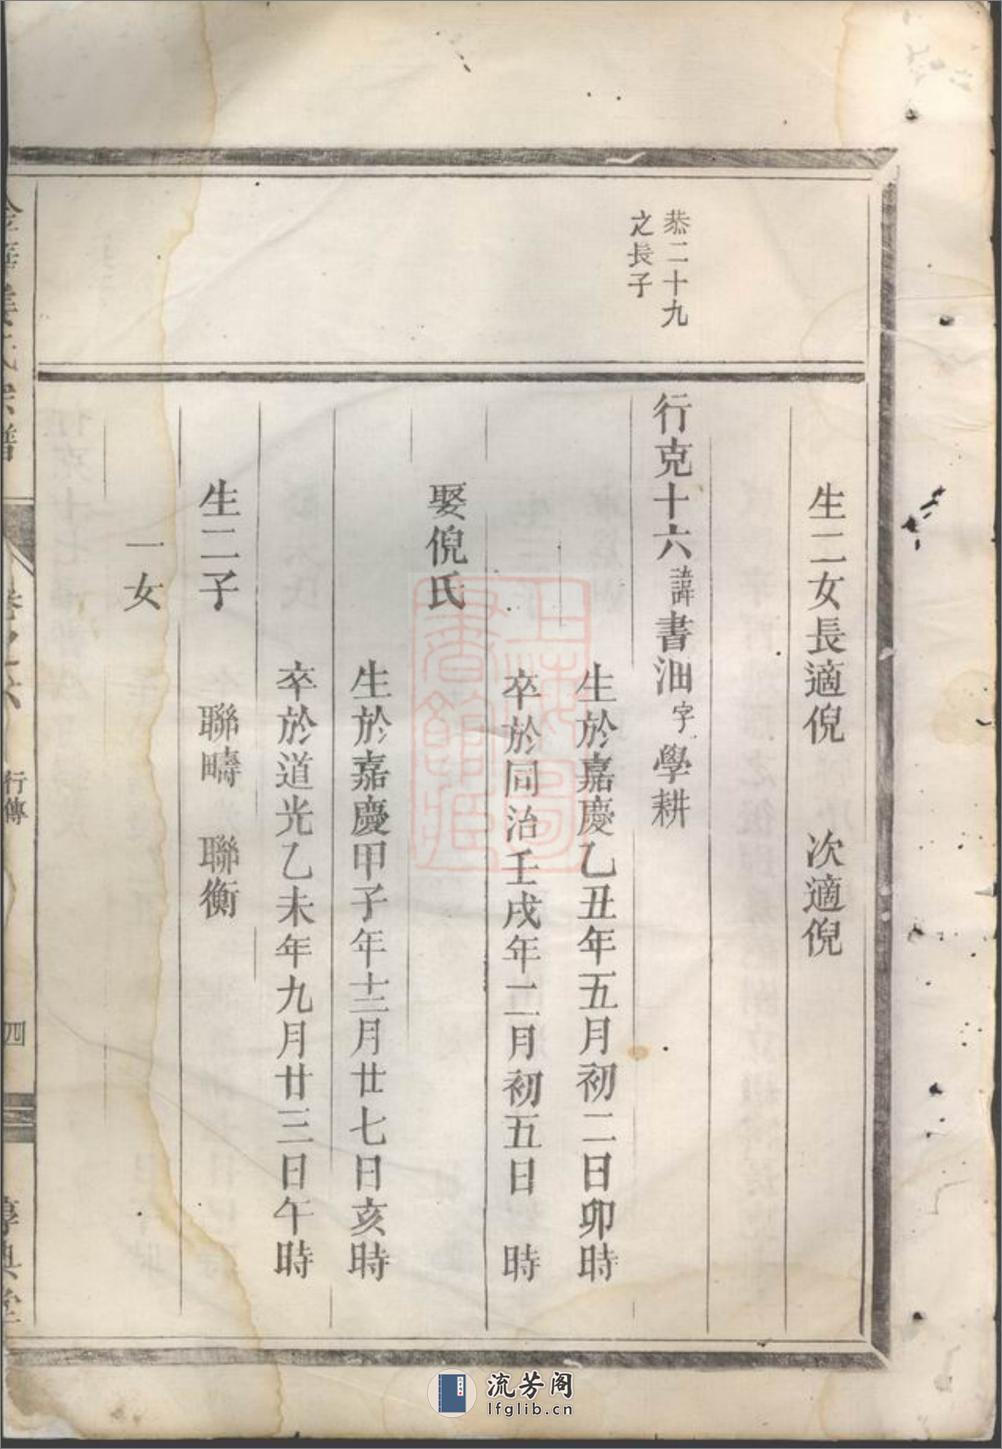 生二女長適倪 次適倪
恭二十九
之長子
行克十六諱書油字學耕
生於嘉慶乙丑年五月初二日卯時
卒於同治壬戌年二月初五日 時
娶倪氏
生於嘉慶甲子年十二月廿七日亥時
卒於道光乙未年九月廿三日午時
生二子 聯疇 聯衡
一女
氏宗譜
卷之六 行傳 四
上海圖書館藏
流芳阁
lfglib.cn